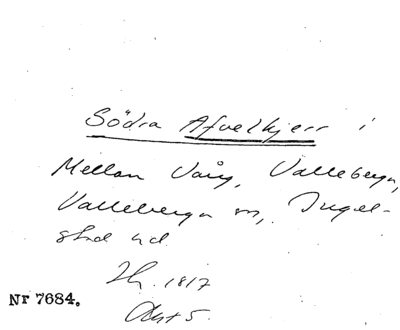 Södra Afvelkjerr i
Mellan Vång, Valleberga,
Valleberga sn, Ingel-
stad hd.
1817
Nr 7684.
Akt 5.